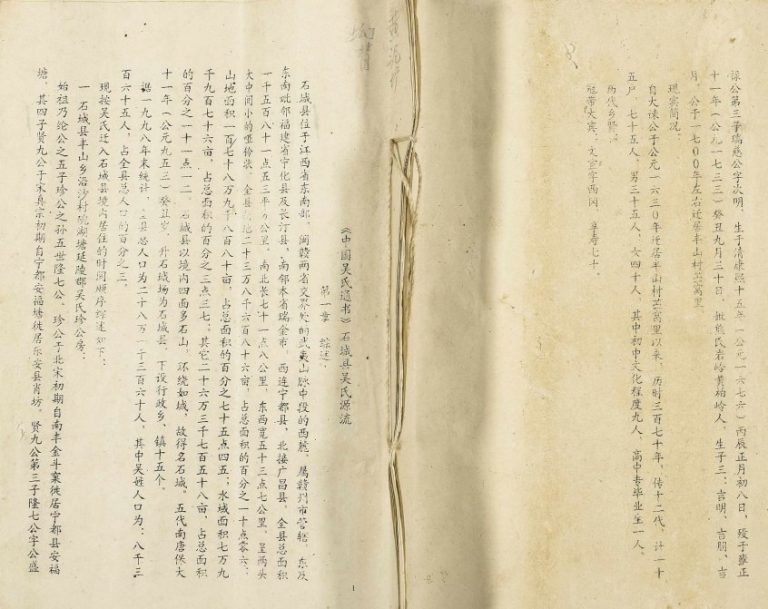 公第三子瑞慈公字次明,生于清康熙十五年(公元一六七六)丙辰正月初八日,殁于雍正
十一年(公元一七三三)癸丑九月三十日,熊氏岩岭黄柏岭人,生子三:言明、言朋、言
月,公于一七00年左右迁居丰山村窝里。
现实简况:
自大公于公元一六三0年迁居丰山村窝里以来,历时三百七十年,传十二代,计一十
五户,七十五人,男三十五人,女四十人,其中初中文化程度九人,高中专毕业生一人。
历代乡贤:
冠带大宾,文字西冈,享寿七十。
《中国吴氏通书》石城县吴氏源流
第一章 综述
石城县位于江西省东南部,闽赣两省交界处的武夷山脉中段的西麓,属赣州市管辖,东及
东南毗邻福建省宁化县及长汀县,南邻本省瑞金市,西连宁都县,北接广昌县,全县总面积
一千五百八十一点五三平方公里,南北长七十一点八公里,东西宽五十三点七公里,呈两头
大中间小的哑铃状,全县地二十三万八千六百八十六亩,占总面积的百分之一十点零六;
山地面积一百七十八万九千八百八十亩,占总面积的百分之七十五点四五;水域面积七万九
千九百七十六亩,占总面积的百分之三点三七;其它二十六万三千七百五十八亩,占总面积
的百分之一十一点一二。石城县以境内四面多石山,环绕如城,故得名石城。五代南唐保大
十一年(公元九五三)癸丑岁,升石城场为石城县,下设行政乡、镇十五个。
据一九九八年末统计,全县总人口为二十八万一千三百六十人,其中吴姓人口为:八千三
百六十五人,占全县总人口的百分之三。
现按吴氏迁入石城县境内居住的时间顺序综述如下:
一 石城县丰山乡沿沙村湖塘延陵郡吴氏珍公房:
始祖乃纶公之五子珍公之孙五世隆七公,珍公于北宋初期自南丰金斗窠徙居宁都县安福
塘,其四子贤九公于宋真宗初期自宁都安福塘徙居乐安县肖坊。贤九公第三子隆七公字公盛
1